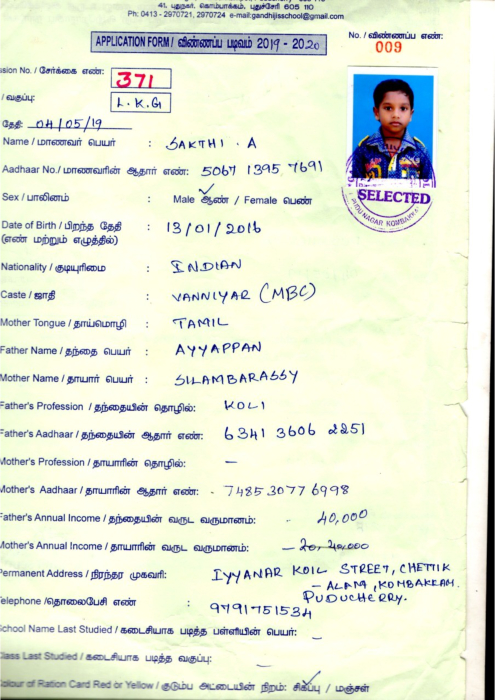 41, புதுநகர், கொம்பாக்கம், புதுச்சேரி 605 110
Ph: 0413 - 2970721, 2970724 e-mail:gandhijisschool@gmail.com
APPLICATION FORM / விண்ணப்ப படிவம் 2019 - 2020
No. / விண்ணப்ப எண்:
009
ssion No. / சேர்க்கை எண்: 371
/ வகுப்பு: L.K.G
தேதி: 04/05/19
Name / மாணவர் பெயர் : SAKTHI . A
Aadhaar No./ மாணவரின் ஆதார் எண்: 5067 1395 7691
SELECTED
PUDU NAGAR KOMBAKKA
Sex / பாலினம் : Male ஆண் / Female பெண்
Date of Birth / பிறந்த தேதி : 13/01/2016
(எண் மற்றும் எழுத்தில்)
Nationality / குடியுரிமை : INDIAN
Caste / ஜாதி : VANNIYAR (MBC)
Mother Tongue / தாய்மொழி : TAMIL
Father Name / தந்தை பெயர் : AYYAPPAN
Mother Name / தாயார் பெயர் : SILAMBARASSY
Father's Profession / தந்தையின் தொழில்: KOLI
Father's Aadhaar / தந்தையின் ஆதார் எண்: 6341 3606 2251
Mother's Profession / தாயாரின் தொழில்: —
Mother's Aadhaar / தாயாரின் ஆதார் எண்: - 7485 3077 6998
Father's Annual Income / தந்தையின் வருட வருமானம்: - 40,000
Mother's Annual Income / தாயாரின் வருட வருமானம்: —
Permanent Address / நிரந்தர முகவரி: IYYANAR KOIL STREET, CHETTIK
– ALAM, KOMBAKKAM.
PUDUCHERRY.
elephone /தொலைபேசி எண் : 9791751534
chool Name Last Studied / கடைசியாக படித்த பள்ளியின் பெயர்: —
lass Last Studied / கடைசியாக படித்த வகுப்பு: —
olour of Ration Card Red or Yellow / குடும்ப அட்டையின் நிறம்: சிகப்பு / மஞ்சள்